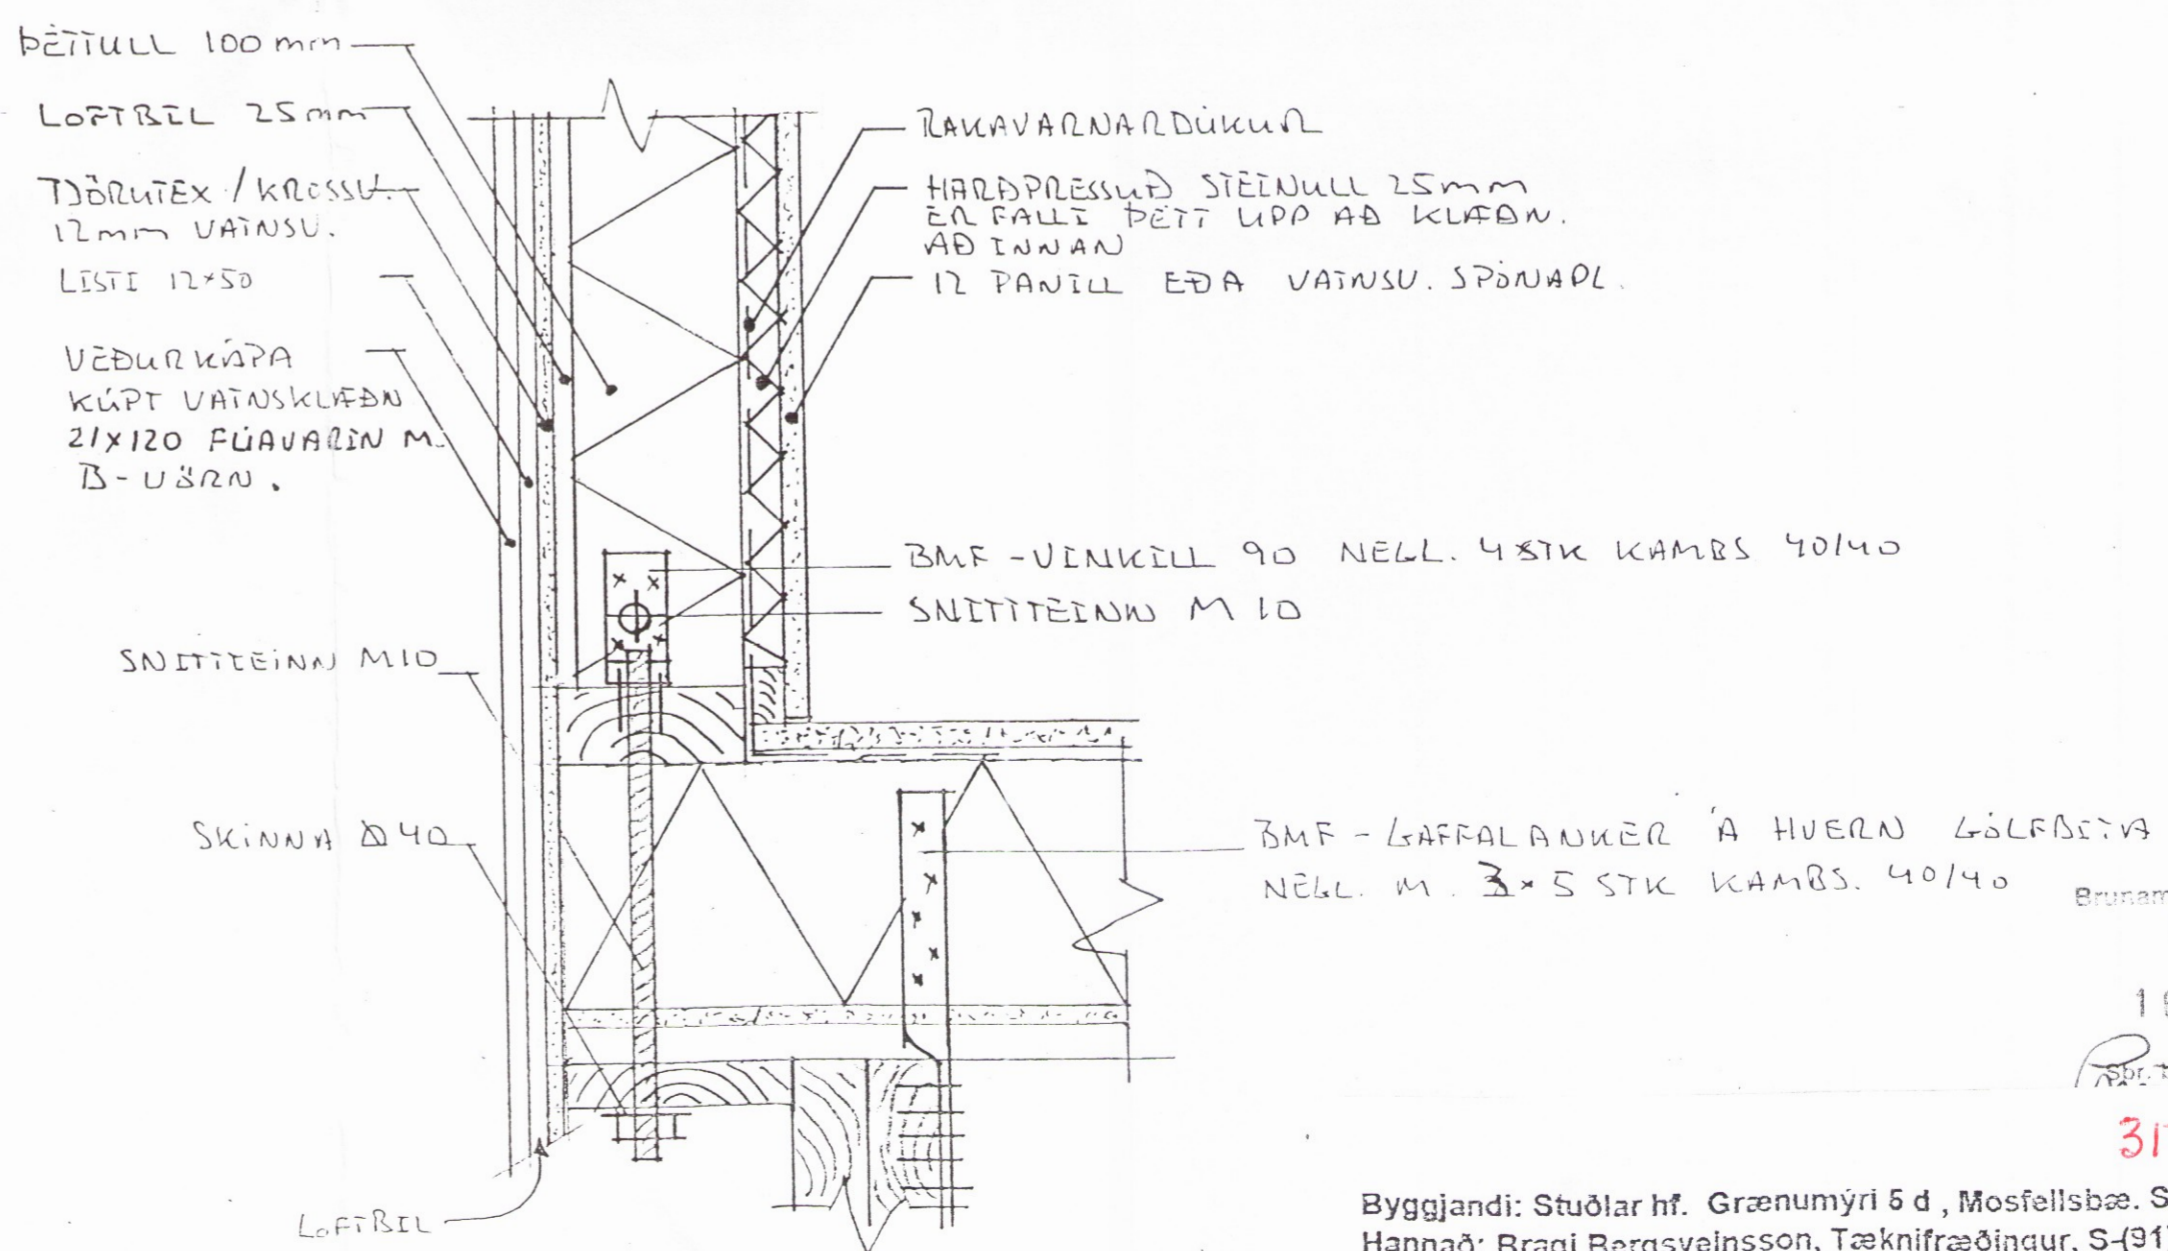 ÞÉTTULL 100 mm
LOFTBIL 25 mm
TJÖRUTEX / KROSSV.
12 mm VATNSV.
LISTI 12×50
VEÐURKÁPA
KÚPT VATNSKLÆÐN
21×120 FÚAVARIN M.
B-VÖRN.
SNITTTEINN M10
SKINNA Ø40
LOFTBIL
RAKAVARNARDÚKUR
HARÐPRESSUÐ STEINULL 25mm
ER FALLI ÞÉTT UPP AÐ KLÆÐN.
AÐ INNAN
12 PANILL EÐA VATNSV. SPÓNAPL.
BMF - VINKILL 90 NEGL. 4 STK KAMBS 40/40
SNITTTEINN M 10
BMF - GAFFALANKER Á HVERN GÓLFBITA
NEGL. M. 3 × 5 STK KAMBS. 40/40
Brunam
Sbr.
31
Byggjandi: Stuðlar hf. Grænumýri 5 d , Mosfellsbæ. S
Hannað: Bragi Bergsveinsson, Tæknifræðingur, S-(91